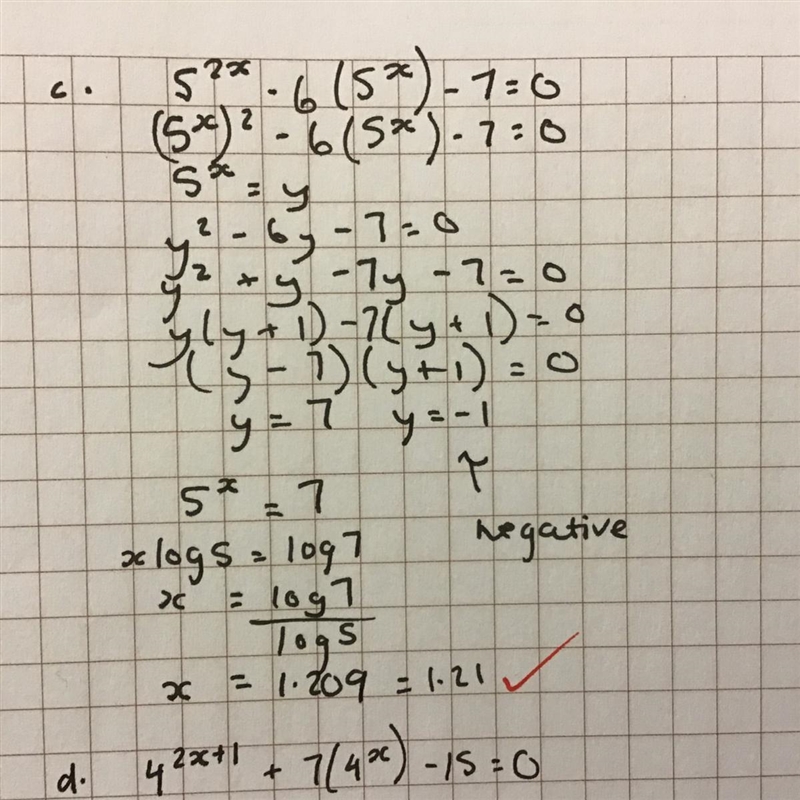 c. 5^2x - 6(5^x) - 7 = 0
(5^x)^2 - 6(5^x) - 7 = 0
5^x = y
y^2 - 6y - 7 = 0
y^2 + y - 7y - 7 = 0
y(y + 1) - 7(y + 1) = 0
(y - 7)(y + 1) = 0
y = 7 y = -1
↑
5^x = 7
negative
x log 5 = log 7
x = log 7 / log 5
x = 1.209 = 1.21 ✓
d. 4^2x+1 + 7(4^x) - 15 = 0